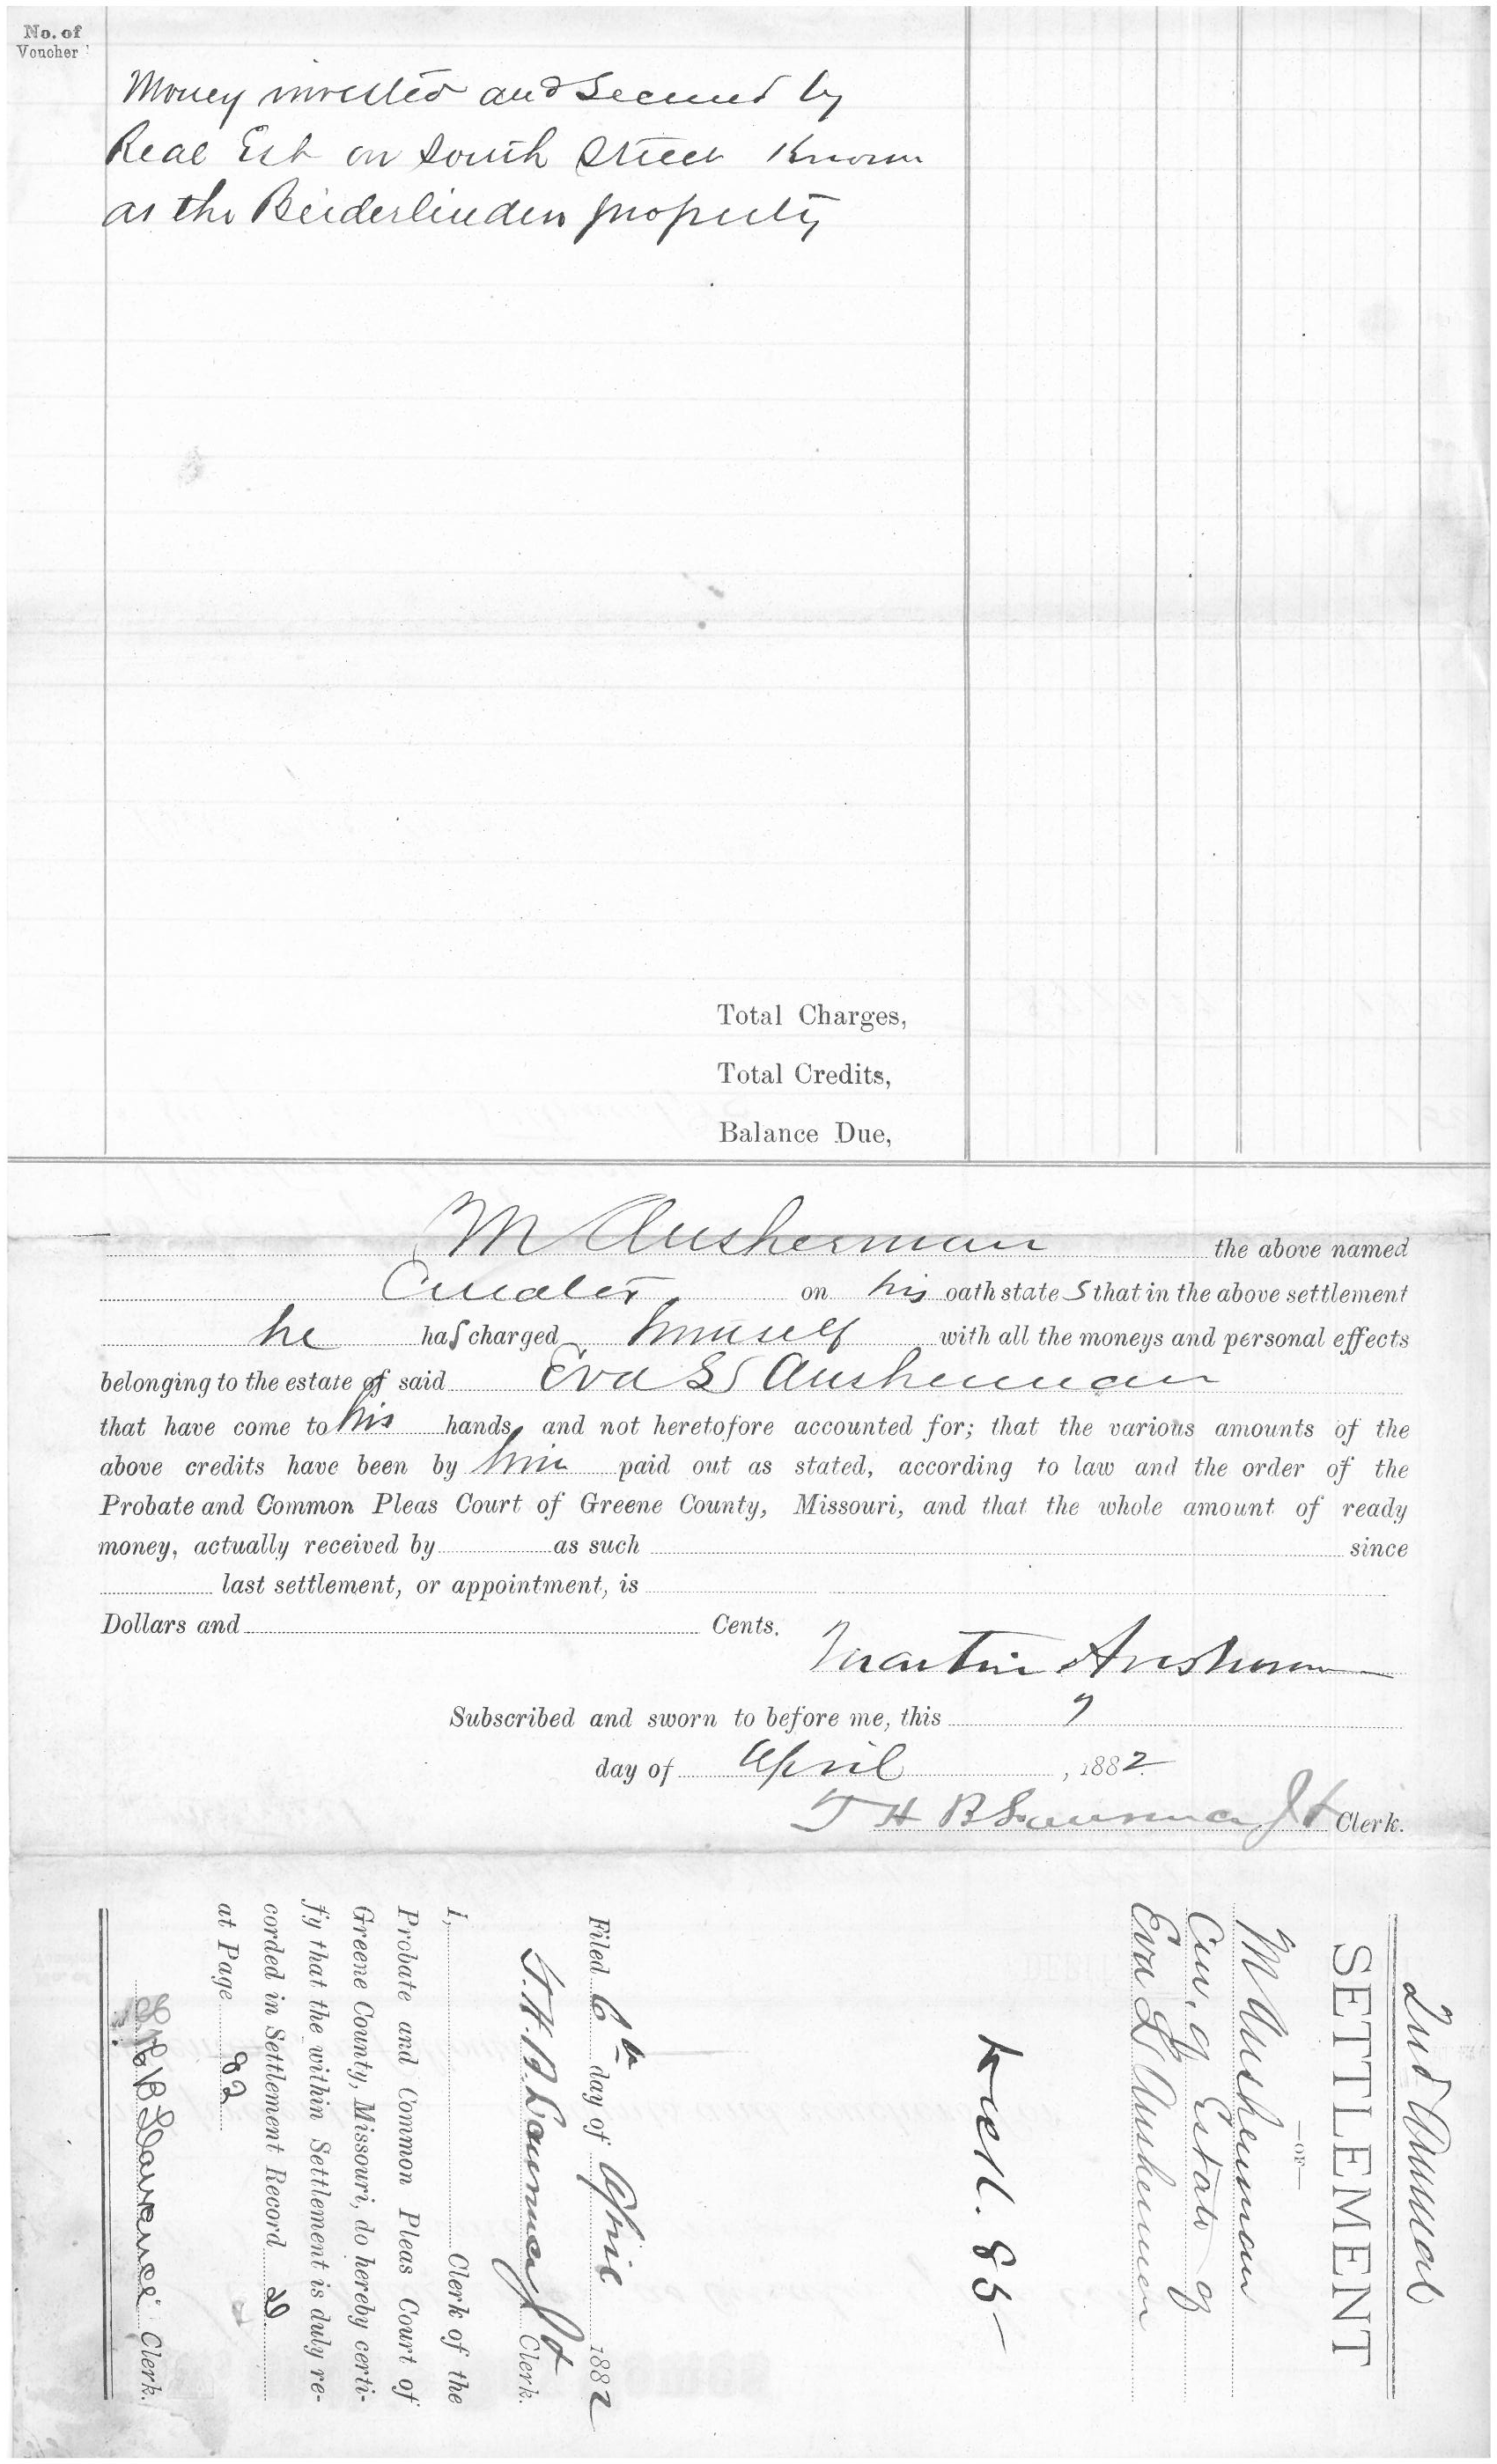 No. of
Voucher
Money invested and Secured by
Real Est on South Street Known
as the Beiderlinden property
Total Charges,
Total Credits,
Balance Due,
M Ausherman the above named
Curator on his oath state s that in the above settlement
he has charged himself with all the moneys and personal effects
belonging to the estate of said Eva L Ausherman
that have come to his hands, and not heretofore accounted for; that the various amounts of the
above credits have been by him paid out as stated, according to law and the order of the
Probate and Common Pleas Court of Greene County, Missouri, and that the whole amount of ready
money, actually received by as such since
last settlement, or appointment, is
Dollars and Cents.
Martin Ausherman
Subscribed and sworn to before me, this 7
day of April, 1882
T H B Lawrence Clerk.
2nd Annual
SETTLEMENT
—OF—
M Ausherman
Cur. of Estate of
Eva L Ausherman
85
Filed 6th day of April 1882
T. H. B. Lawrence Clerk.
I, Clerk of the
Probate and Common Pleas Court of
Greene County, Missouri, do hereby certi-
fy that the within Settlement is duly re-
corded in Settlement Record D
at Page 82
T H B Lawrence Clerk.